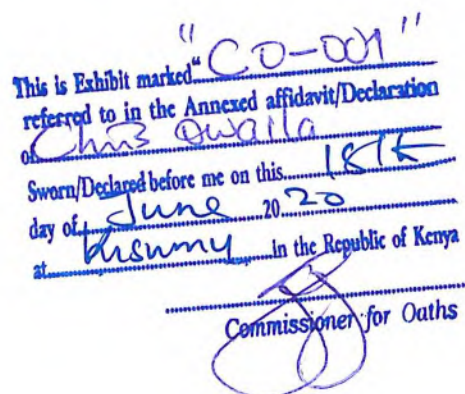 This is Exhibit marked "CO-001"
referred to in the Annexed affidavit/Declaration
of Chris Owalla
Sworn/Declared before me on this 18th
day of June 2020
at Kisumu in the Republic of Kenya
Commissioner for Oaths